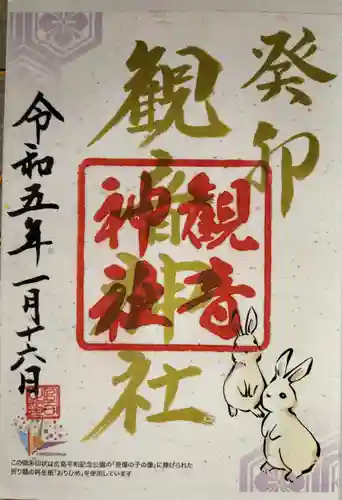 癸卯
観音神社
観音
神社
令和五年一月十六日
この御朱印状は広島平和記念公園の「原爆の子の像」に捧げられた
折り鶴の再生紙「おりひめ」を使用しています